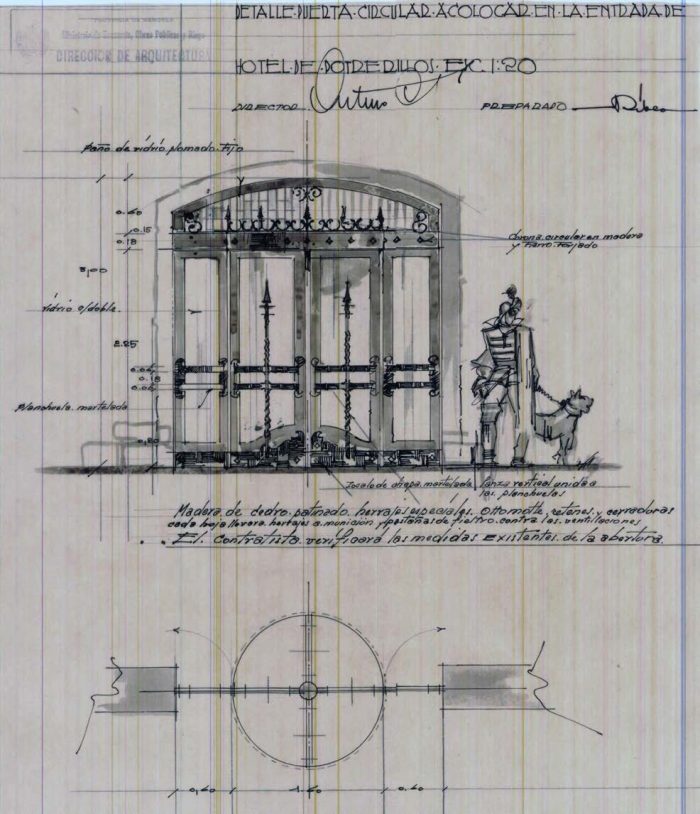 PROVINCIA DE MENDOZA
Ministerio de Economía, Obras Públicas y Riego
DIRECCION DE ARQUITECTURA
DETALLE PUERTA CIRCULAR A COLOCAR EN LA ENTRADA DE
HOTEL DE POTRERILLOS ESC. 1:20
DIRECTOR Arturo
PREPARADO
Paño de vidrio plomado fijo
0.60
0.15
0.18
Corona circular en madera
y hierro forjado
3,00
vidrio c/doble
2.25
0.04
0.18
0.04
Planchuela martelada
0.20
Zocalo de chapa martelada
Lanza vertical unida a
las planchuelas
Madera de cedro patinado herrajes especiales
cada hoja llevara herrajes a munición y pestañas de fieltro contra las ventilaciones
El contratista verificará las medidas existentes de la abertura.
0,60
1.60
0.60